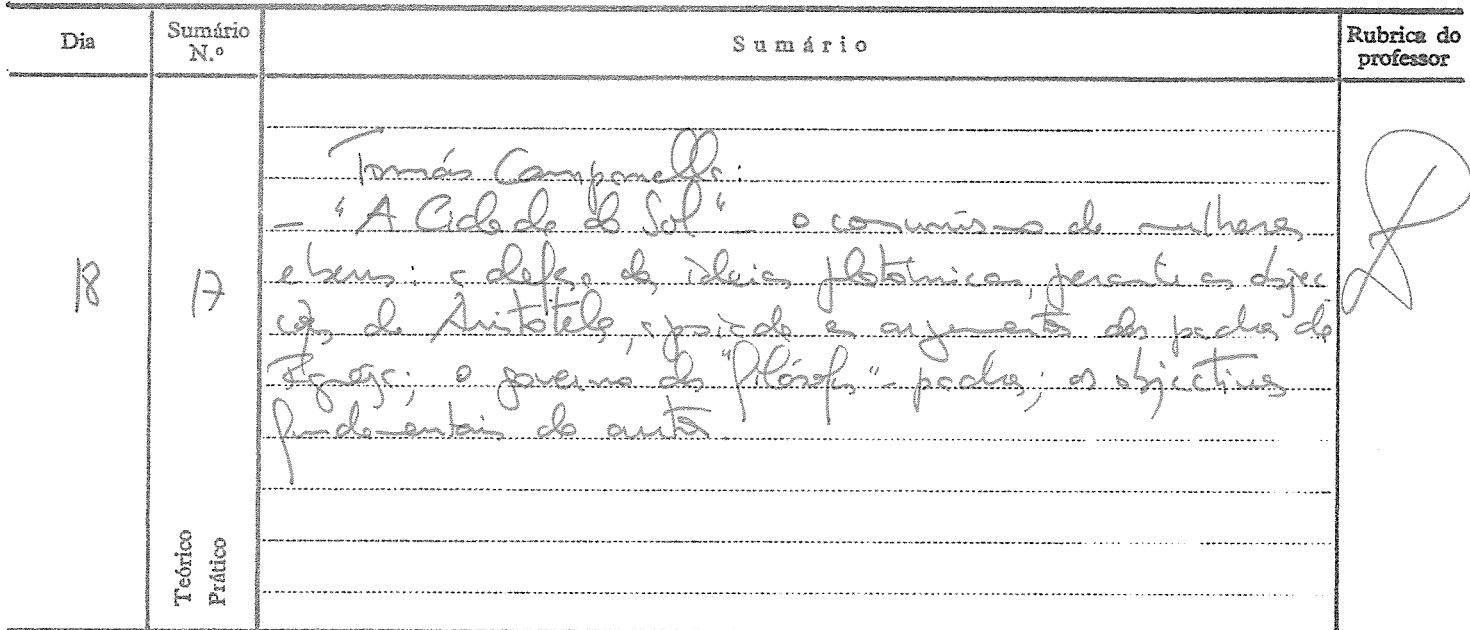 Dia
Sumário N.º
Sumário
Rubrica do professor
18
17
Teórico
Prático
Tomás Campanella:
- "A Cidade do Sol" - o comunismo de mulheres
e bens: a defesa das ideias platónicas, perante as objec
ções de Aristóteles, apoiado em argumentos dos padres da
Igreja; o governo dos "filósofos" - padres; os objectivos
fundamentais do autor.